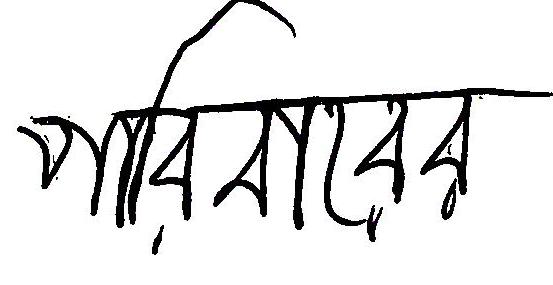 পারিবারের